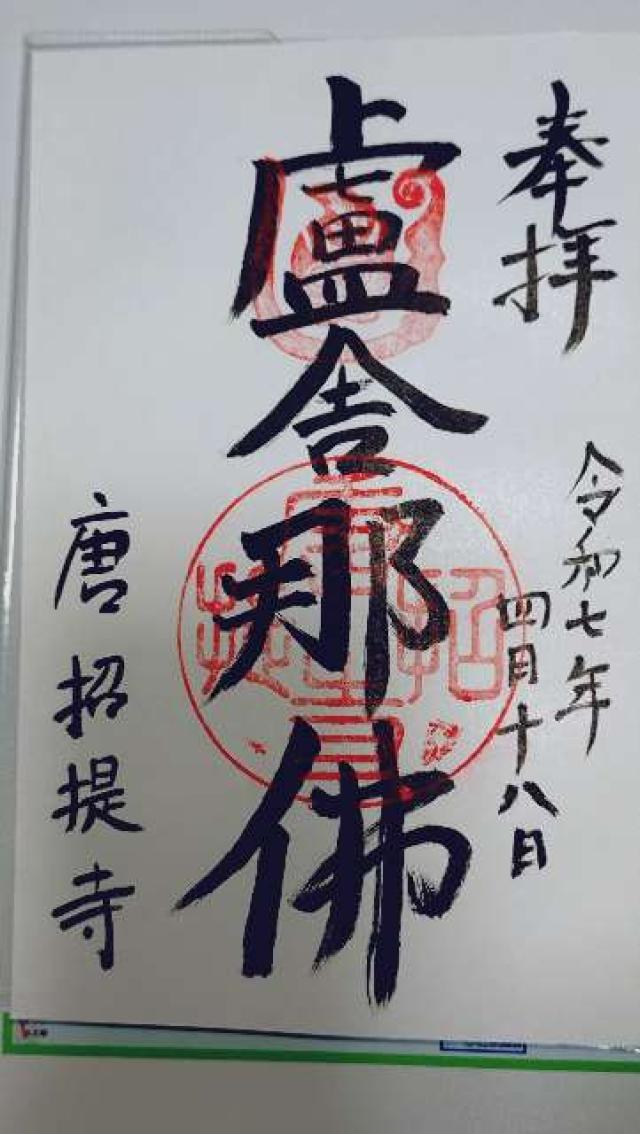 奉拝
令和七年
四月十八日
盧舎那佛
唐招提寺